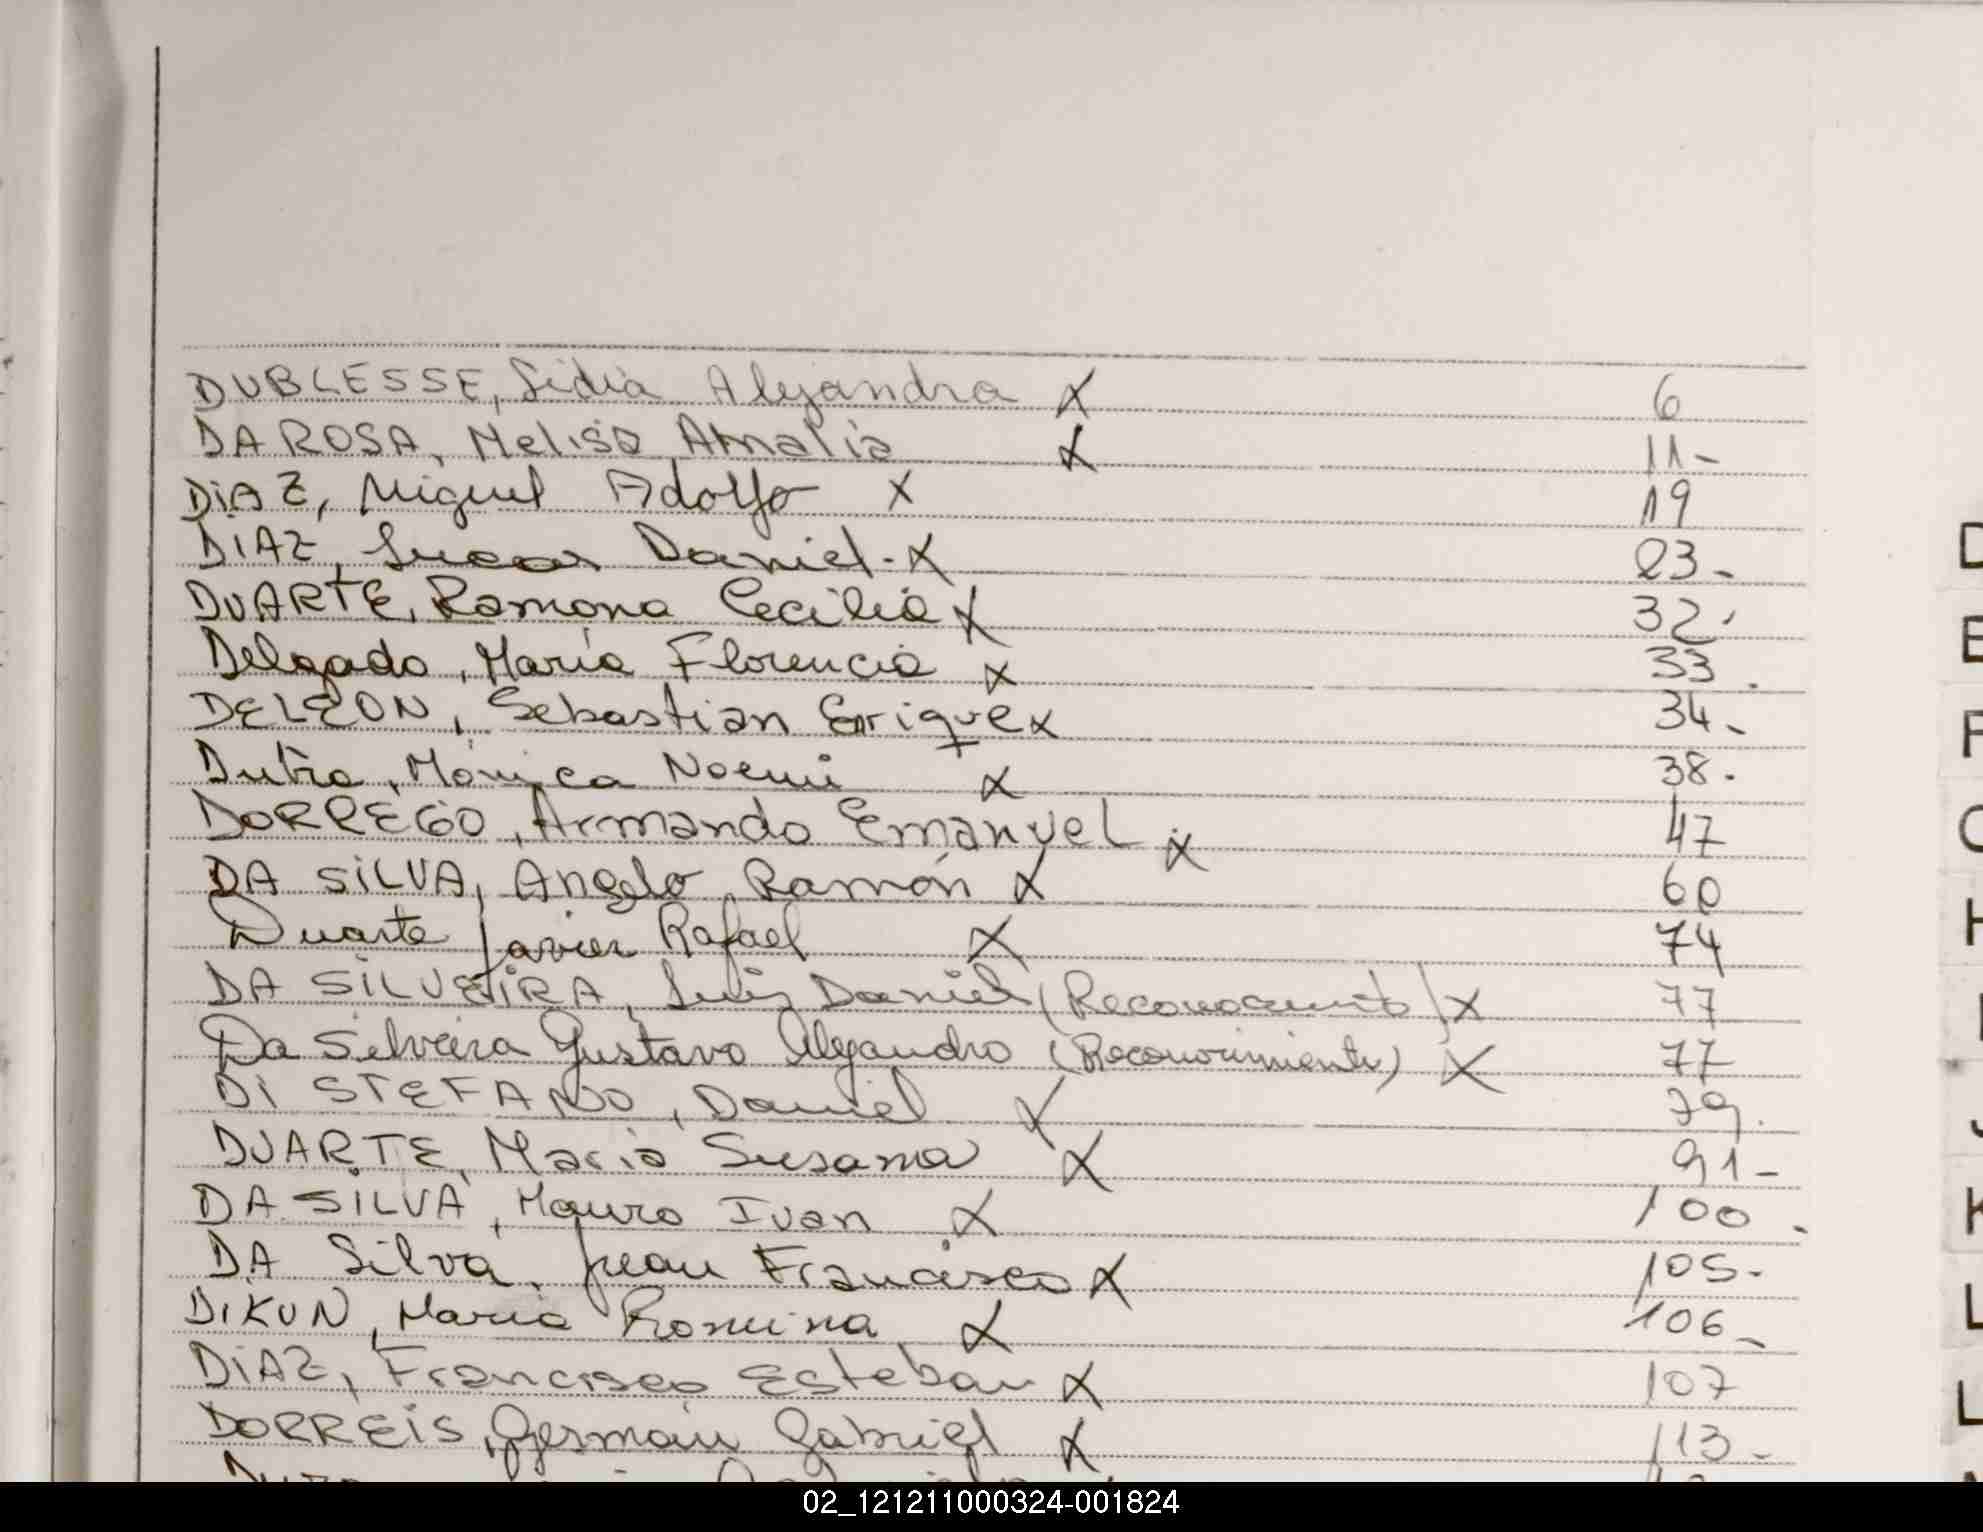 DUBLESSE, Lidia Alejandra X 6
DA ROSA, Melisa Amalia X 11-
DiAZ, Miguel Adolfo X 19
DIAZ, Lucas Daniel.- X 23-
DUARTE, Ramona Cecilia X 32.
Delgado, María Florencia X 33.
DELEON, Sebastian Enrique X 34-
Dutra, Mónica Noemi X 38.
DORREGO, Armando Emanuel X 47
DA SiLVA, Angelo Ramón X 60
Duarte Javier Rafael X 74
DA SiLVEiRA, Luis Daniel (Reconocimiento) X 77
Da Silveira Gustavo Alejandro (Reconocimiento) X 77
Di STEFANO, Daniel X 79.
DUARTE, Maria Susana X 91-
DA SILVA, Mauro Ivan X 100.
DA Silva, Juan Francisco X 105-
DiKUN, Maria Romina X 106-
DiAZ, Francisco Esteban X 107
DORREiS, Germán Gabriel X 113-
D
E
F
H
J
K
L
02_121211000324-001824